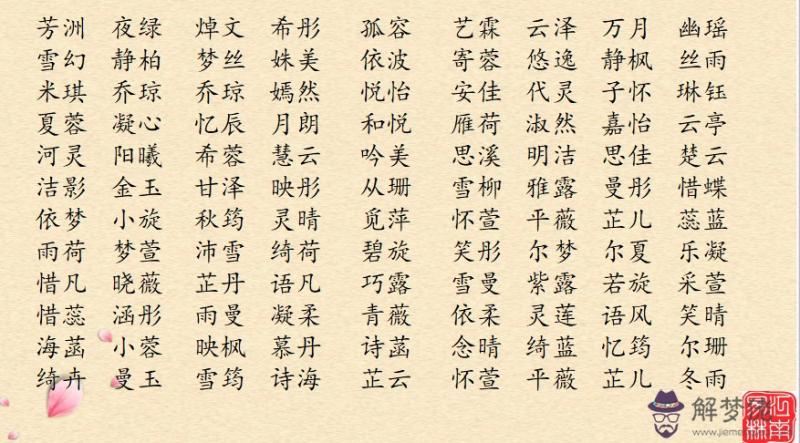 芳洲 夜绿 焯文 希彤 孤容 艺霖 云泽 万月 幽瑶
雪幻 静柏 梦丝 姝美 依波 寄蓉 悠逸 静枫 丝雨
米琪 乔琼 乔琼 嫣然 悦怡 安佳 代灵 子怀 琳钰
夏蓉 凝心 忆辰 月朗 和悦 雁荷 淑然 嘉怡 云亭
河灵 阳曦 希蓉 慧云 吟美 思溪 明洁 思佳 楚云
洁影 金玉 甘泽 映彤 从珊 雪柳 雅露 曼彤 惜蝶
依梦 小旋 秋筠 灵晴 觅萍 怀萱 平薇 芷儿 蕊蓝
雨荷 梦萱 沛雪 绮荷 碧旋 笑彤 尔梦 尔夏 乐凝
惜凡 晓薇 芷丹 语凡 巧露 雪曼 紫露 若旋 采萱
惜蕊 涵彤 雨曼 凝柔 青薇 依柔 灵莲 语风 笑晴
海菡 小蓉 映枫 慕丹 诗菡 念晴 绮蓝 忆筠 尔珊
绮卉 曼玉 雪筠 诗海 芷云 怀萱 平薇 芷儿 冬雨
解梦佬